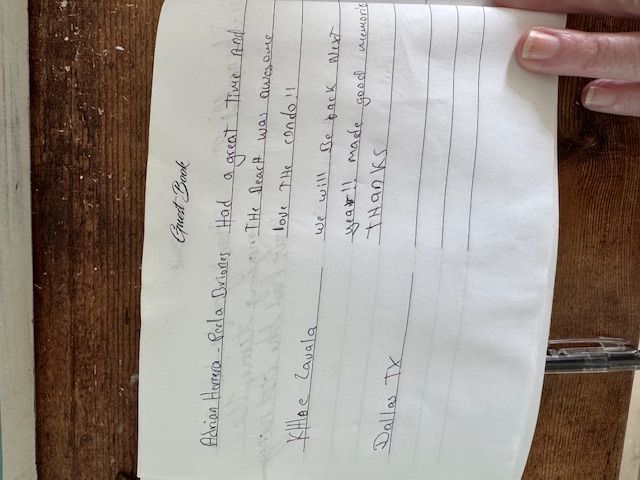 Guest Book
Adrian Herrera - Perla Briones Had a great Time And
THe BeacH was awesome
love THe condo!!
KHloe Zavala
we will Be back Next
year!! made good memorie
Dallas TX THanKs